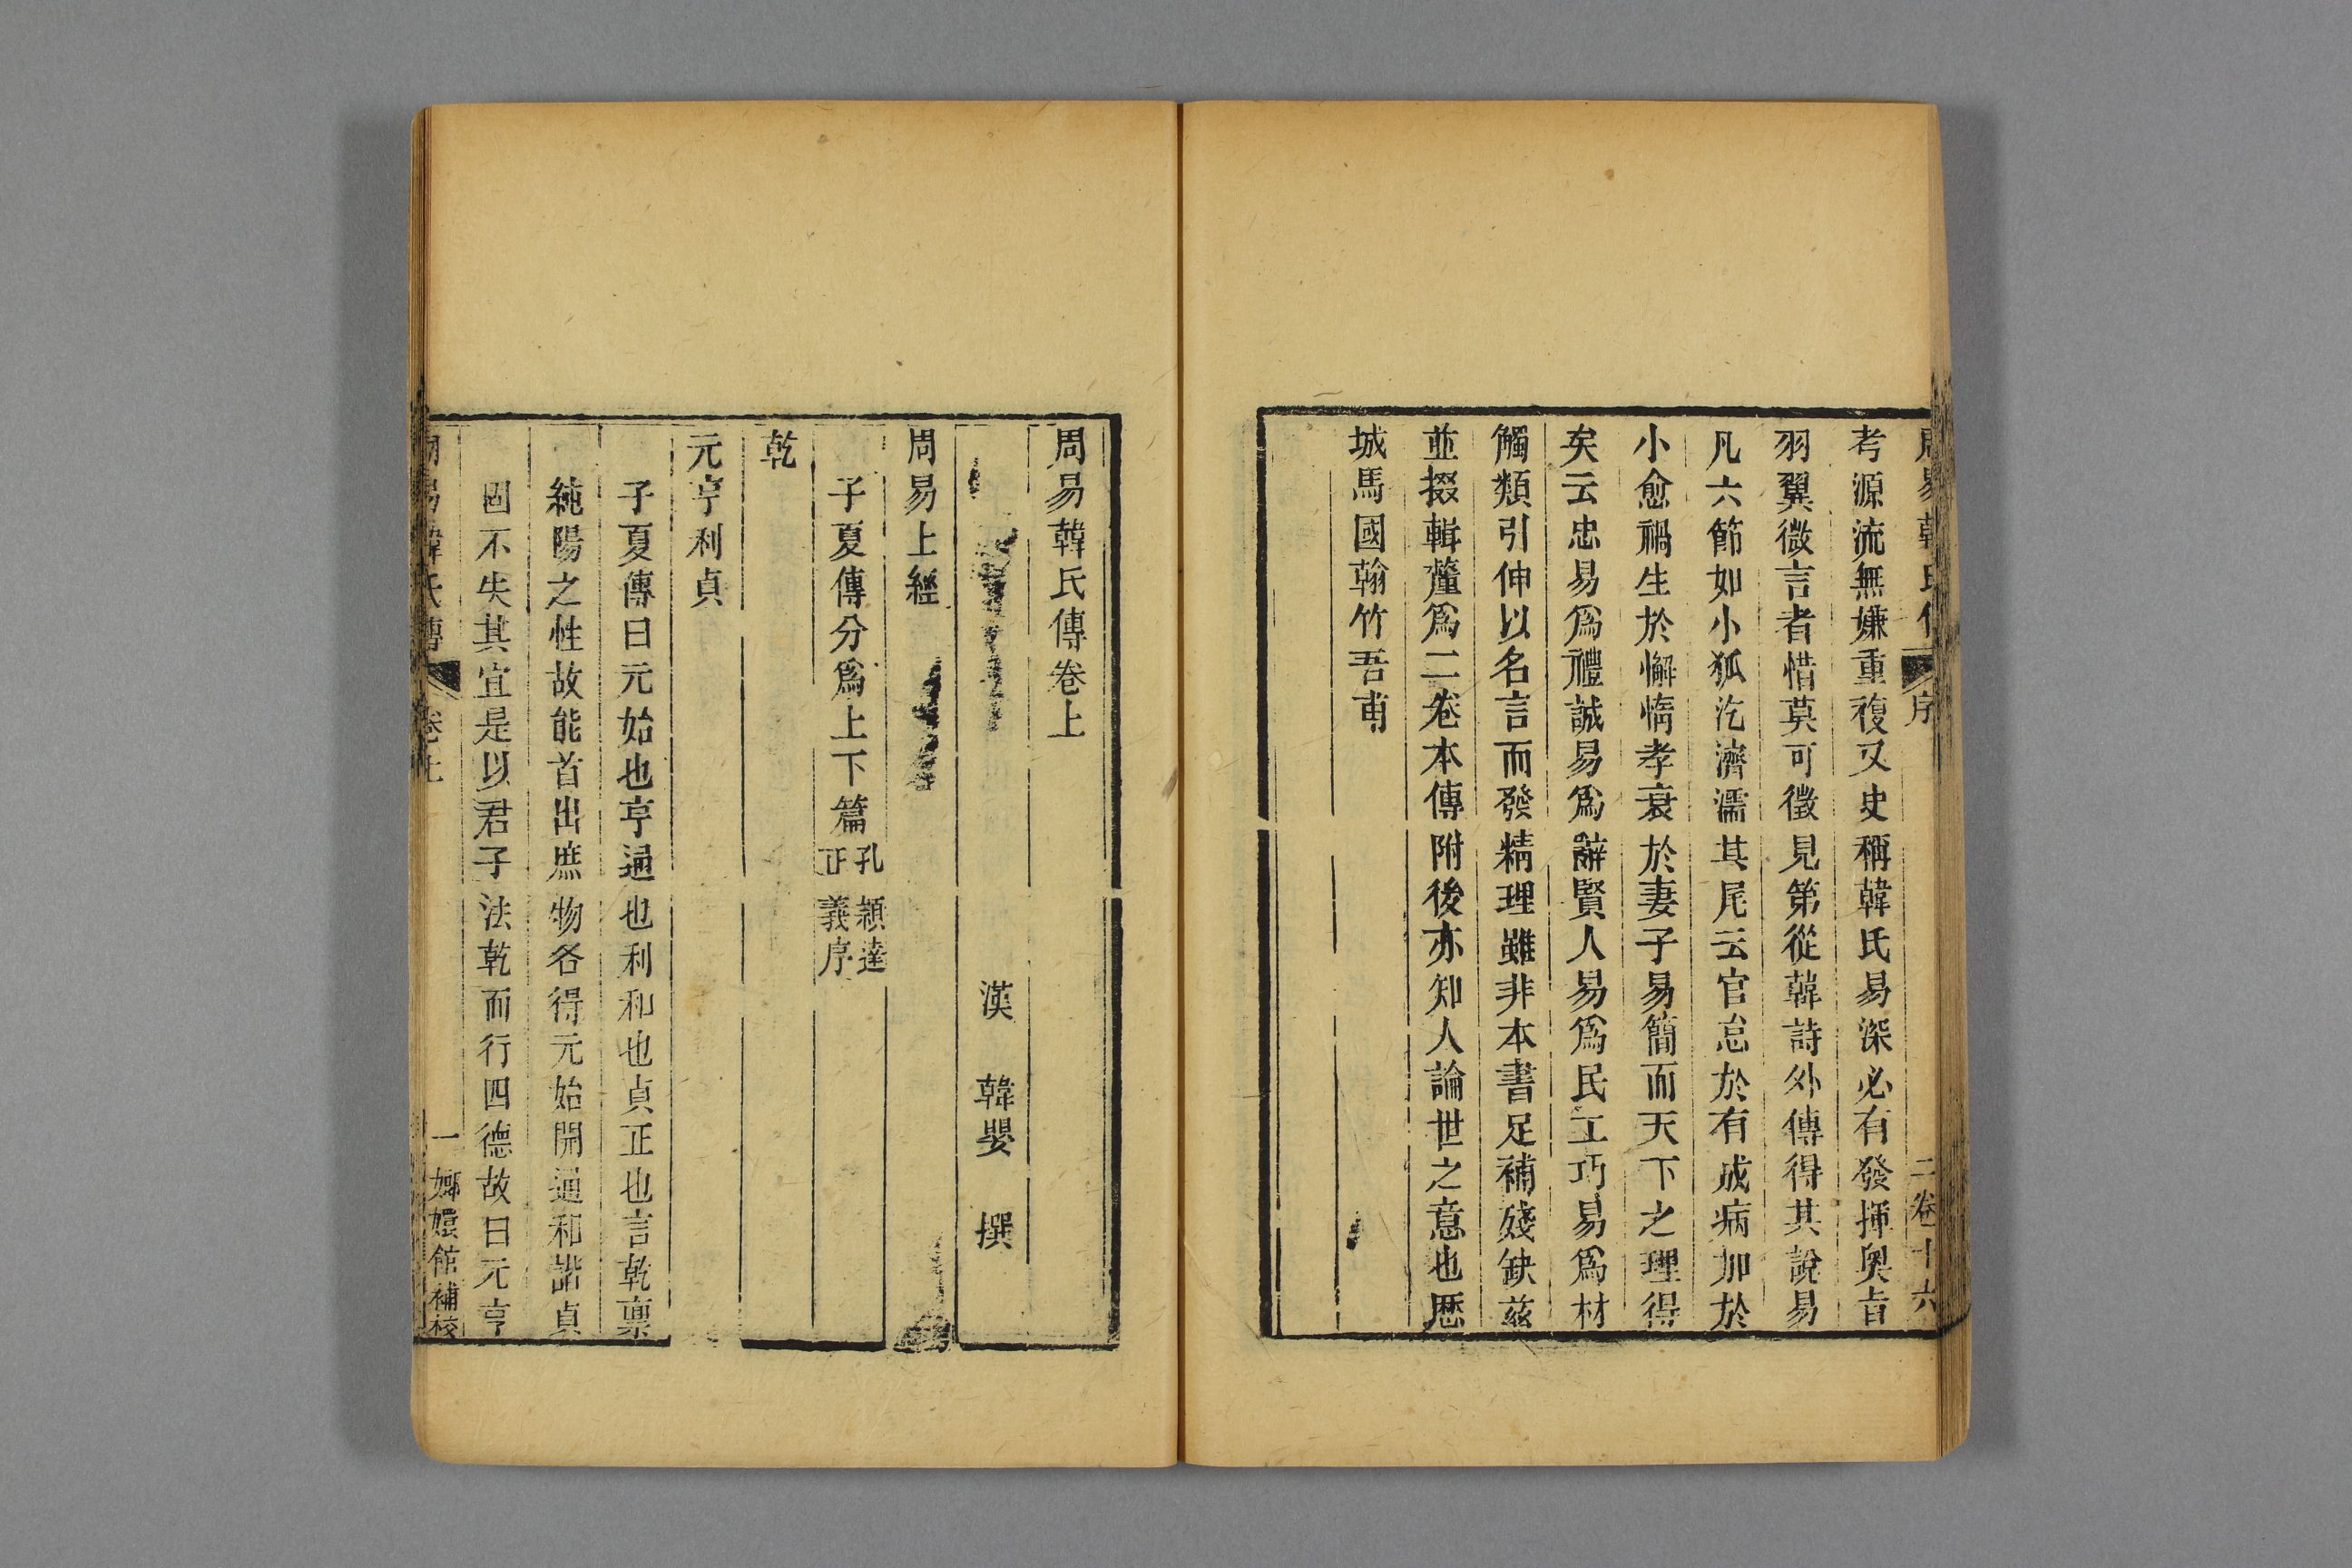 周易韓氏傳 序 二 卷十六
考源流無嫌重複又史稱韓氏易深必有發揮奧旨
羽翼微言者惜莫可徵見第從韓詩外傳得其說易
凡六節如小狐汔濟濡其尾云官怠於有成病加於
小愈禍生於懈惰孝衰於妻子易簡而天下之理得
矣云忠易爲禮誠易爲辭賢人易爲民工巧易爲材
觸類引伸以名言而發精理雖非本書足補殘缺兹
並掇輯釐爲二卷本傳附後亦知人論世之意也歷
城馬國翰竹吾甫
周易韓氏傳卷上
漢 韓嬰 撰
周易上經
子夏傳分爲上下篇孔穎達正義序
乾
元亨利貞
子夏傳曰元始也亨通也利和也貞正也言乾稟
純陽之性故能首出庶物各得元始開通和諧貞
固不失其宜是以君子法乾而行四德故曰元亨
周易韓氏傳 卷上 一 嫏嬛館補校